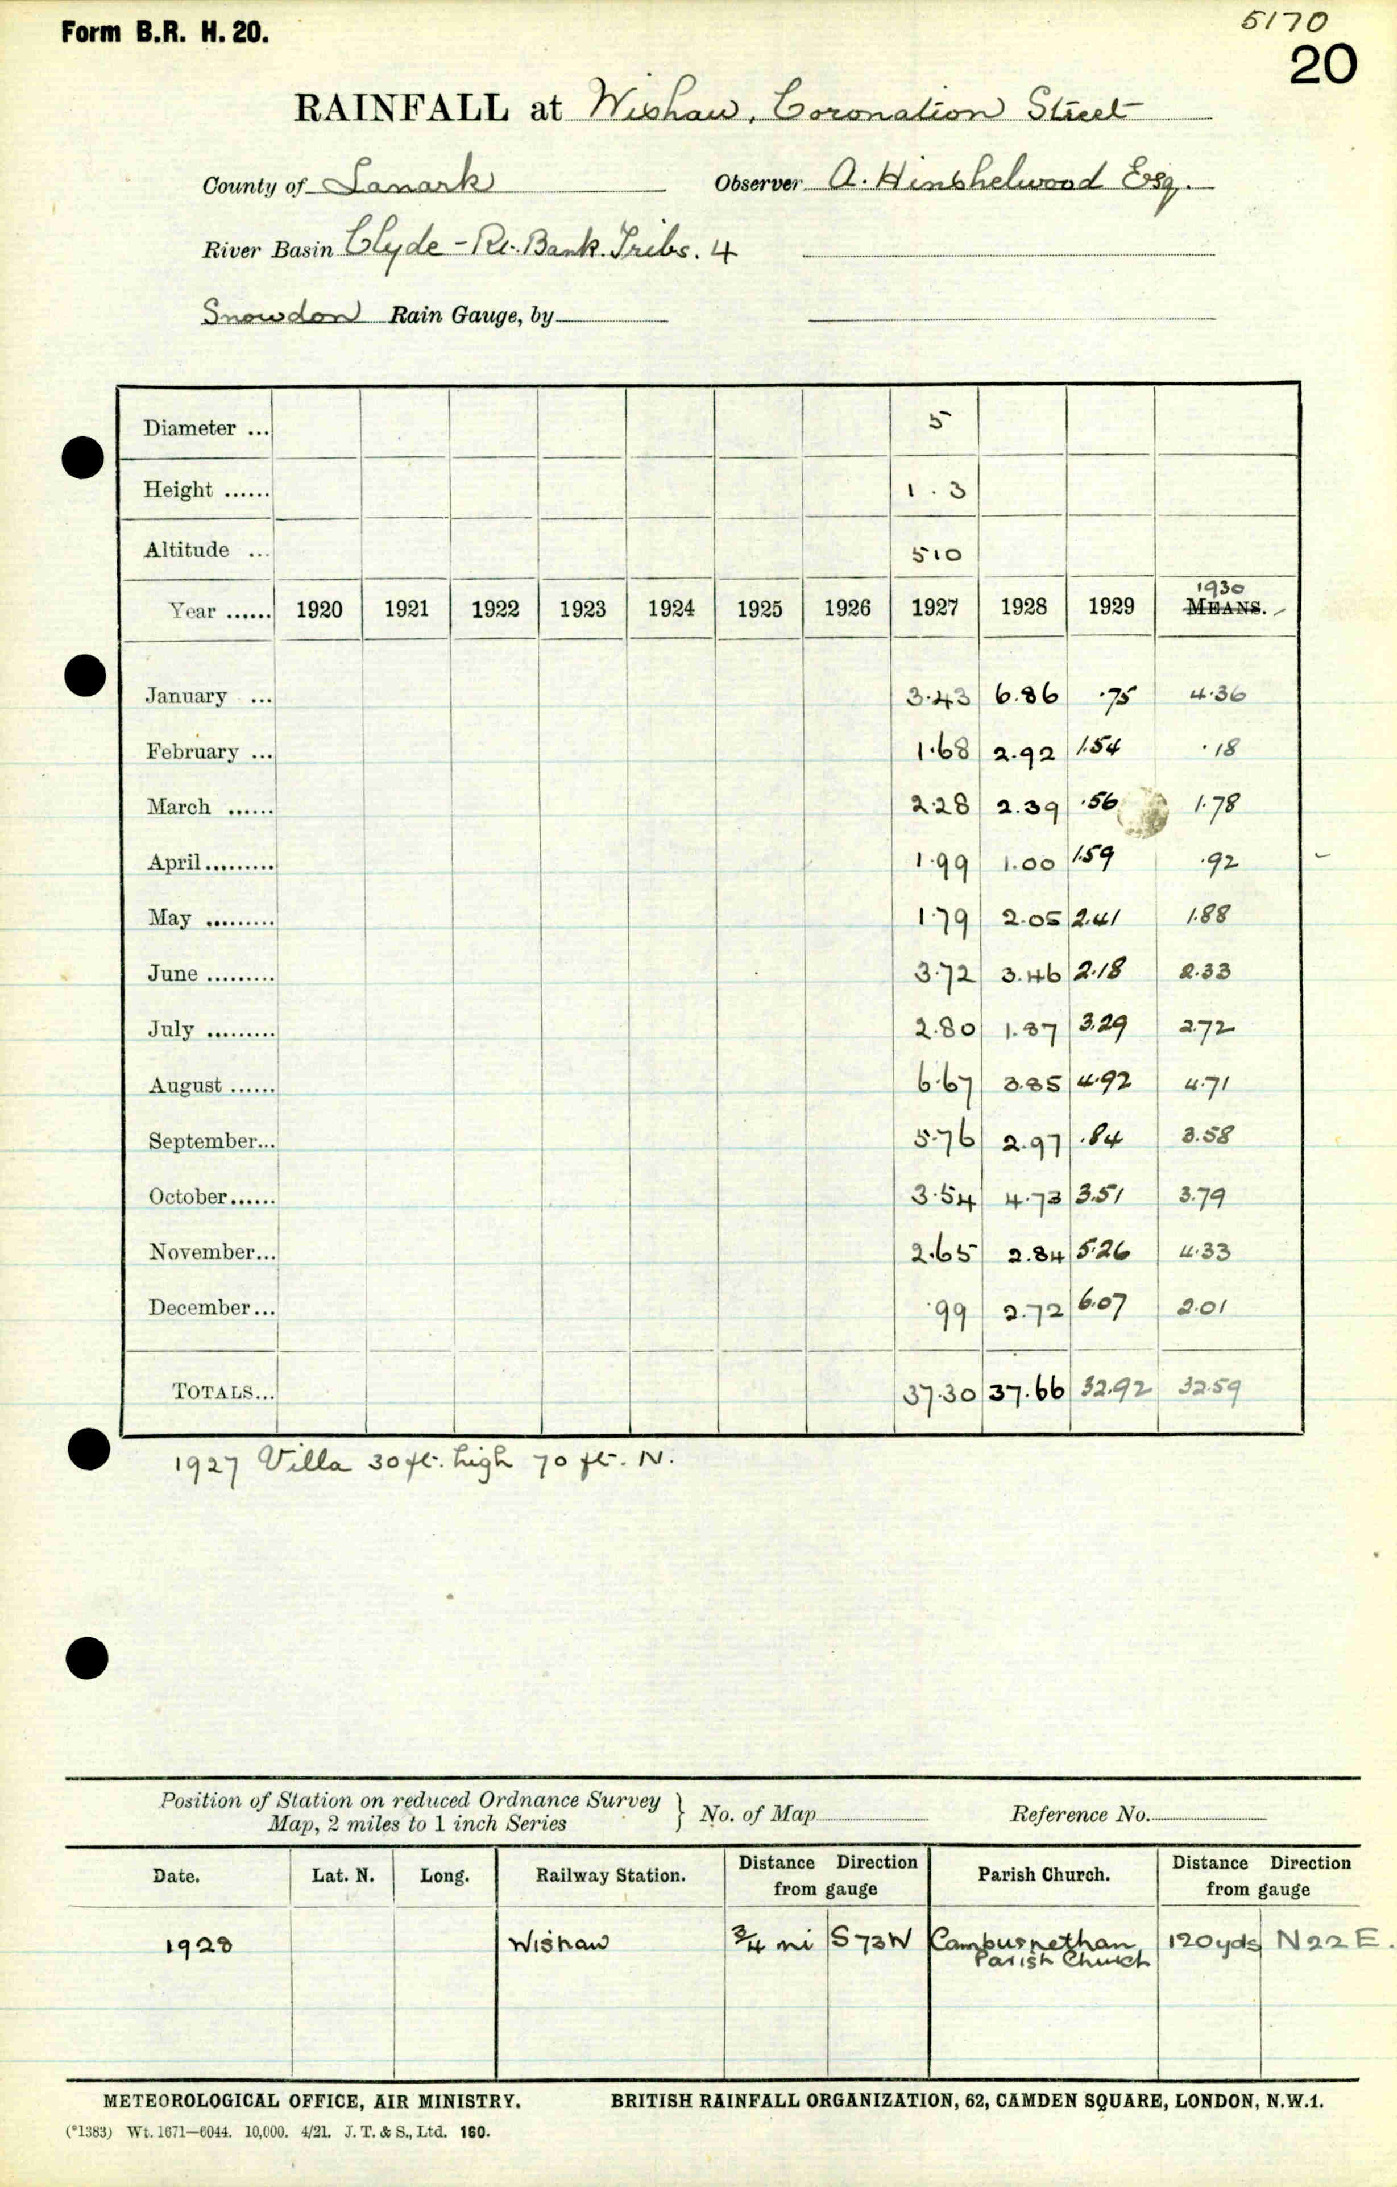 Form B.R. H. 20.
5170
20
RAINFALL at Wishaw, Coronation Street
County of Lanark Observer A. Hinshelwood Esq.
River Basin Clyde - Rt. Bank. Tribs. 4
Snowdon Rain Gauge, by
Diameter ... 5
Height ...... 1 . 3
Altitude ... 510
1930
Year ...... 1920 1921 1922 1923 1924 1925 1926 1927 1928 1929 MEANS.
January ... 3.43 6.86 .75 4.36
February ... 1.68 2.92 1.54 .18
March ...... 2.28 2.39 .56 1.78
April......... 1.99 1.00 1.59 .92
May ......... 1.79 2.05 2.41 1.88
June ......... 3.72 3.46 2.18 2.33
July ......... 2.80 1.87 3.29 2.72
August ...... 6.67 3.85 4.92 4.71
September... 5.76 2.97 .84 3.58
October...... 3.54 4.73 3.51 3.79
November... 2.65 2.84 5.26 4.33
December... .99 2.72 6.07 2.01
TOTALS... 37.30 37.66 32.92 32.59
1927 Villa 30 ft. high 70 ft. N.
Position of Station on reduced Ordnance Survey
Map, 2 miles to 1 inch Series } No. of Map Reference No.
Date. Lat. N. Long. Railway Station. Distance Direction from gauge Parish Church. Distance Direction from gauge
1928 Wishaw 3/4 mi S73W Cambusnethan Parish Church 120yds N22E.
METEOROLOGICAL OFFICE, AIR MINISTRY. BRITISH RAINFALL ORGANIZATION, 62, CAMDEN SQUARE, LONDON, N.W.1.
(*1383) Wt. 1671—6044. 10,000. 4/21. J. T. & S., Ltd. 160.